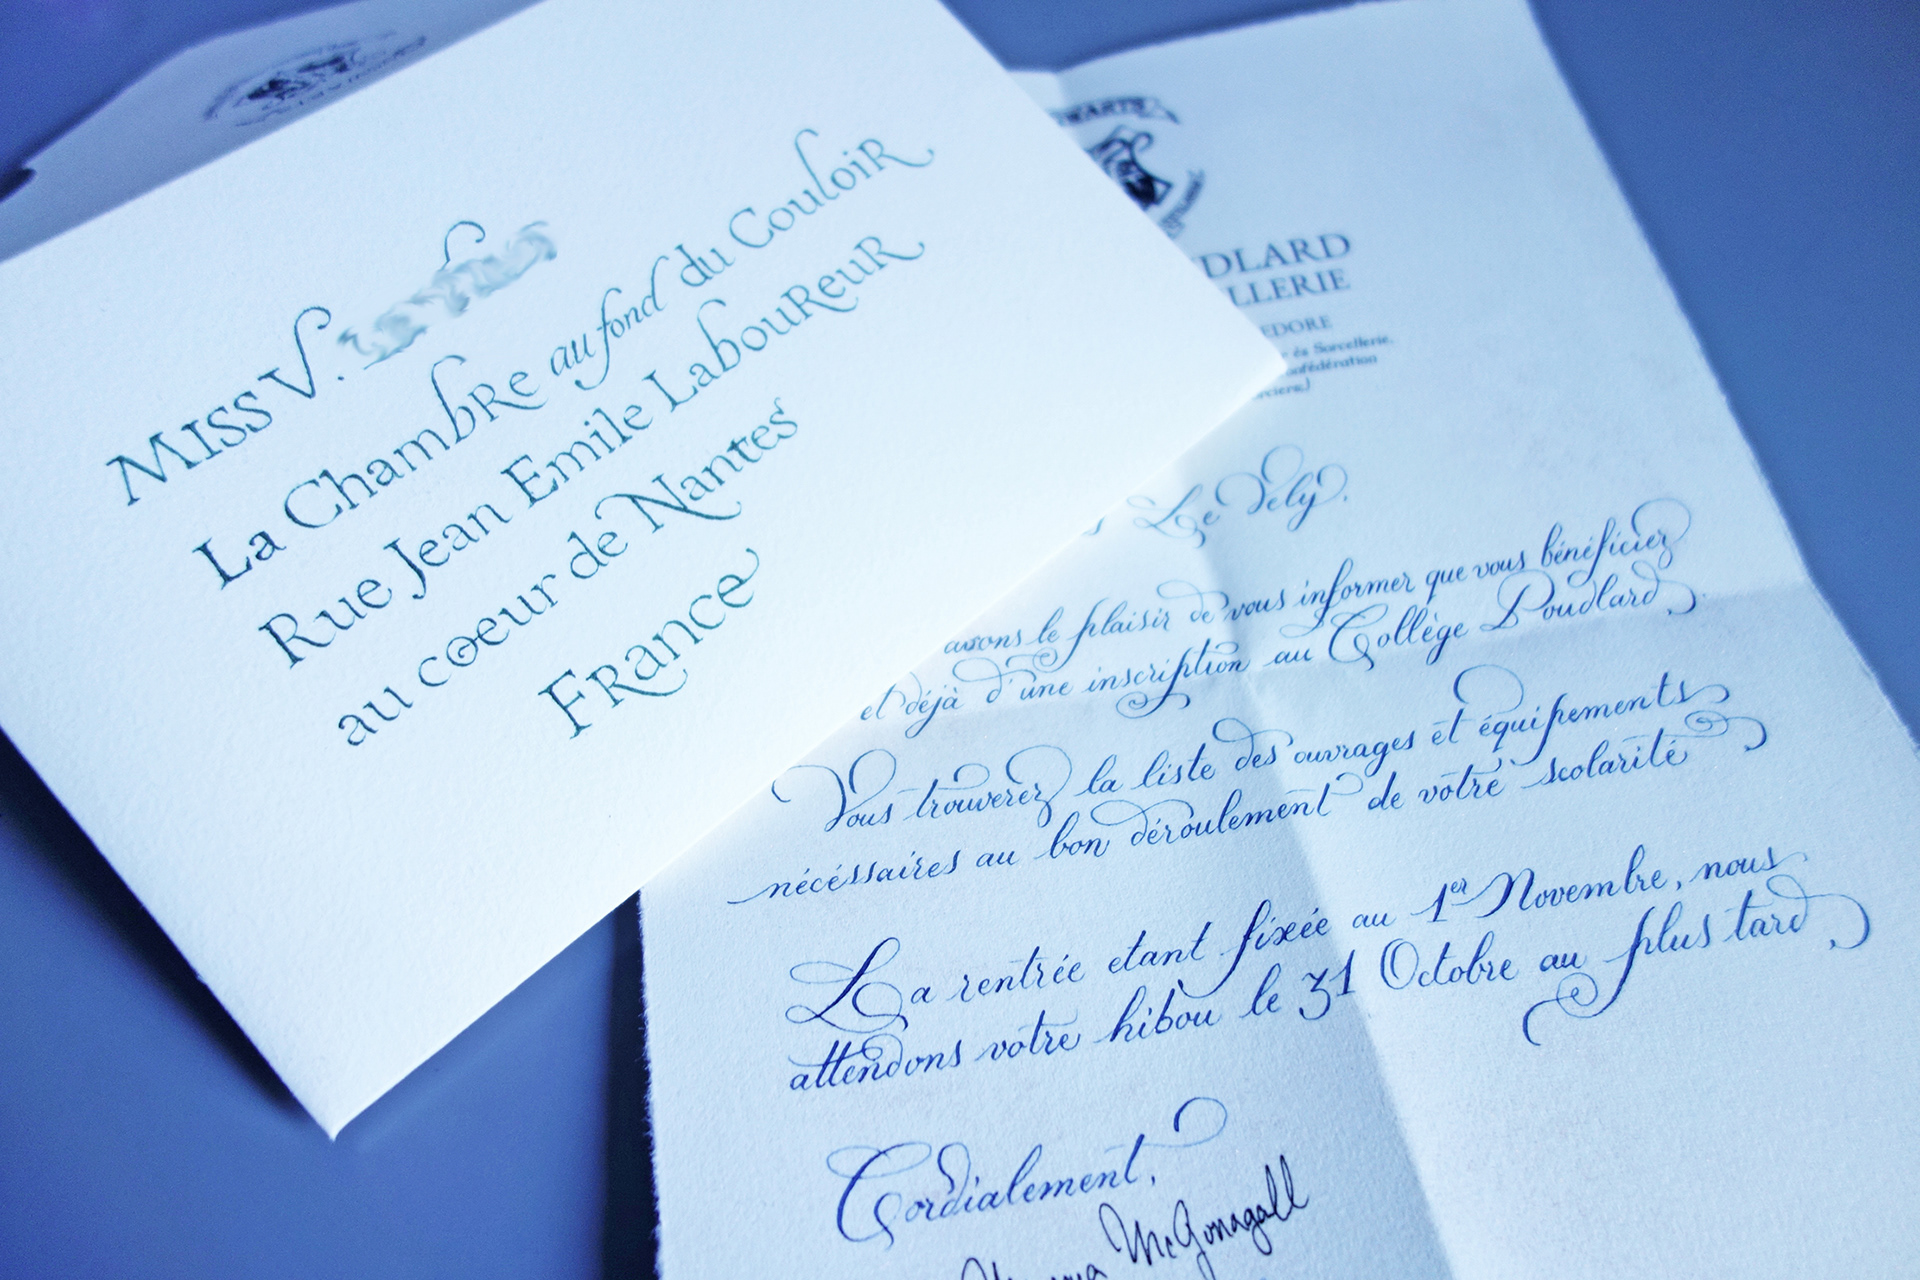 Miss V.
La Chambre au fond du Couloir
Rue Jean Emile Laboureur
au cœur de Nantes
France
DLARD
LLERIE
EDORE
ès Sorcellerie,
nfédération
orciers)
Le Dely,
avons le plaisir de vous informer que vous bénéficiez
et déjà d'une inscription au Collège Poudlard,
Vous trouverez la liste des ouvrages et équipements
nécessaires au bon déroulement de votre scolarité
La rentrée etant fixée au 1er Novembre, nous
attendons votre hibou le 31 Octobre au plus tard,
Cordialement,
McGonagall